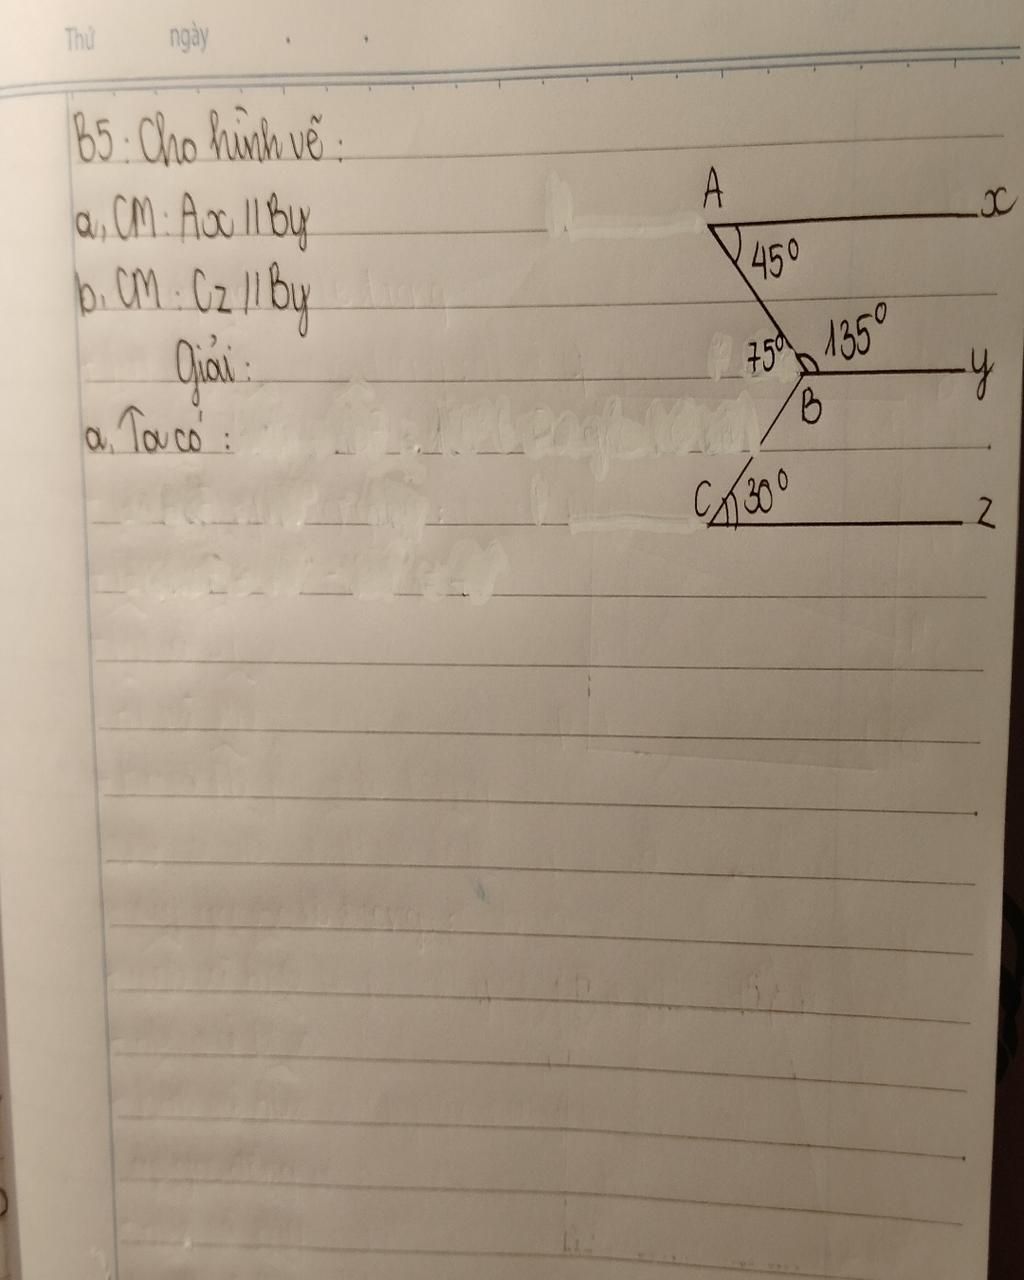 Thứ ngày
B5: Cho hình vẽ:
a, CM: Ax // By
b, CM: Cz // By
Giải:
a, Ta có:
A
x
45°
135°
75°
y
B
C
30°
z